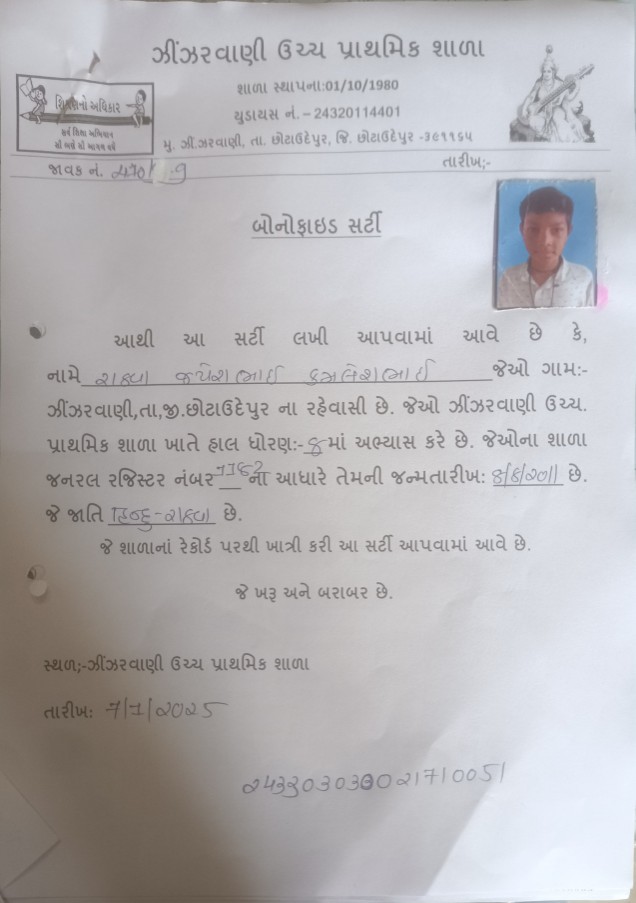 ઝીંઝરવાણી ઉચ્ચ પ્રાથમિક શાળા
શાળા સ્થાપના:01/10/1980
યુડાયસ નં. – 24320114401
મુ. ઝીંઝરવાણી, તા. છોટાઉદેપુર, જિ. છોટાઉદેપુર -૩૯૧૧૬૫
અધિકાર
સર્વ શિક્ષા અભિયાન
સૌ ભણે સૌ આગળ વધે
જાવક નં.
તારીખ;-
બોનોફાઇડ સર્ટી
આથી આ સર્ટી લખી આપવામાં આવે છે કે,
નામે રાઠવા જયેશભાઈ કમલેશભાઈ જેઓ ગામ:-
ઝીંઝરવાણી,તા,જી.છોટાઉદેપુર ના રહેવાસી છે. જેઓ ઝીંઝરવાણી ઉચ્ચ.
પ્રાથમિક શાળા ખાતે હાલ ધોરણ:- માં અભ્યાસ કરે છે. જેઓના શાળા
જનરલ રજિસ્ટર નંબર ના આધારે તેમની જન્મતારીખ: ૪/૪/૨૦૧૧ છે.
જે જાતિ હિન્દુ-રાઠવા છે.
જે શાળાનાં રેકોર્ડ પરથી ખાત્રી કરી આ સર્ટી આપવામાં આવે છે.
જે ખરૂ અને બરાબર છે.
સ્થળ;-ઝીંઝરવાણી ઉચ્ચ પ્રાથમિક શાળા
તારીખ: 7/1/૨૦૨5